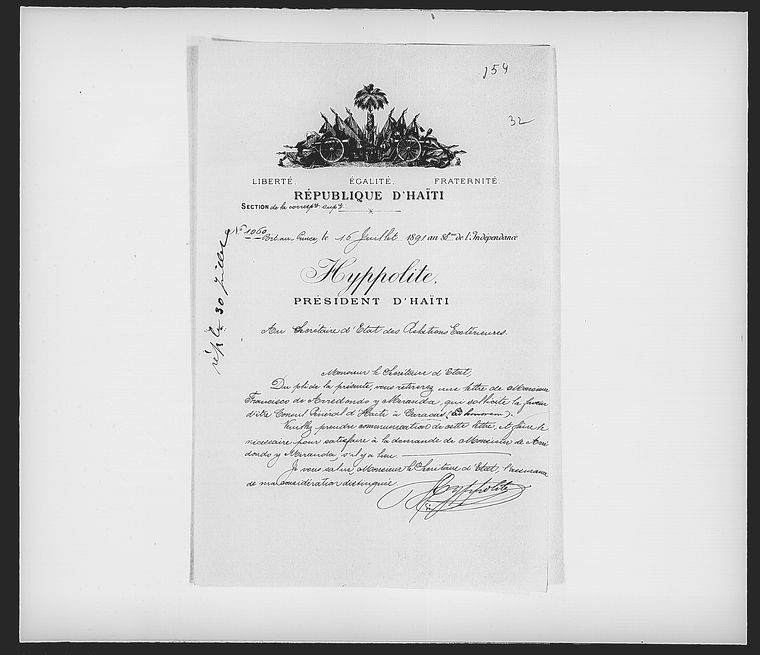 154
32
LIBERTÉ. ÉGALITÉ. FRATERNITÉ.
RÉPUBLIQUE D'HAÏTI
SECTION de la correspce.
No 1060
Port-au-Prince, le 16 Juillet 1891 an 88me de l'Indépendance
Hyppolite,
PRÉSIDENT D'HAÏTI
Au Secrétaire d'Etat des Relations Extérieures.
Monsieur le Secrétaire d'Etat,
Du pli de la présente, vous retirerez une lettre de Monsieur
Francisco de Arredondo y Miranda, qui sollicite la faveur
d'être Consul Général d'Haïti à Caracas, (ad honorem).
Veuillez prendre communication de cette lettre, et faire le
nécessaire pour satisfaire à la demande de Monsieur de Arre
dondo y Miranda, s'il y a lieu
Je vous salue, Monsieur le Secrétaire d'Etat, l'assurance
de ma considération distinguée
Hyppolite
rép. le 30 juillet